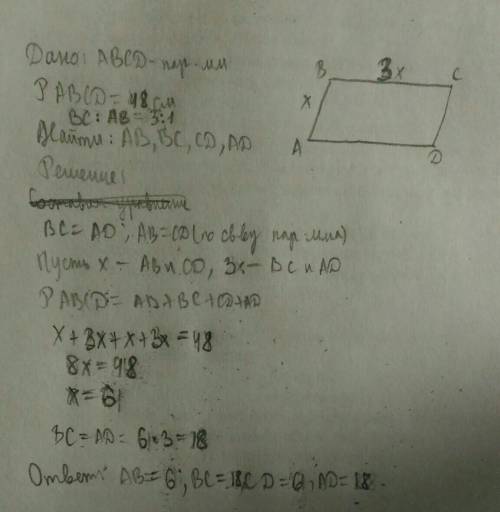 Дано: ABCD - пар-мм
P ABCD = 48 см
BC : AB = 3:1
Найти: AB, BC, CD, AD
Решение:
BC = AD; AB = CD (по св-ву пар-мма)
Пусть x - AB и CD, 3x - BC и AD
P ABCD = AD + BC + CD + AD
x + 3x + x + 3x = 48
8x = 48
x = 6
BC = AD = 6 · 3 = 18
Ответ: AB = 6; BC = 18, CD = 6; AD = 18.
B 3x C
x
A D